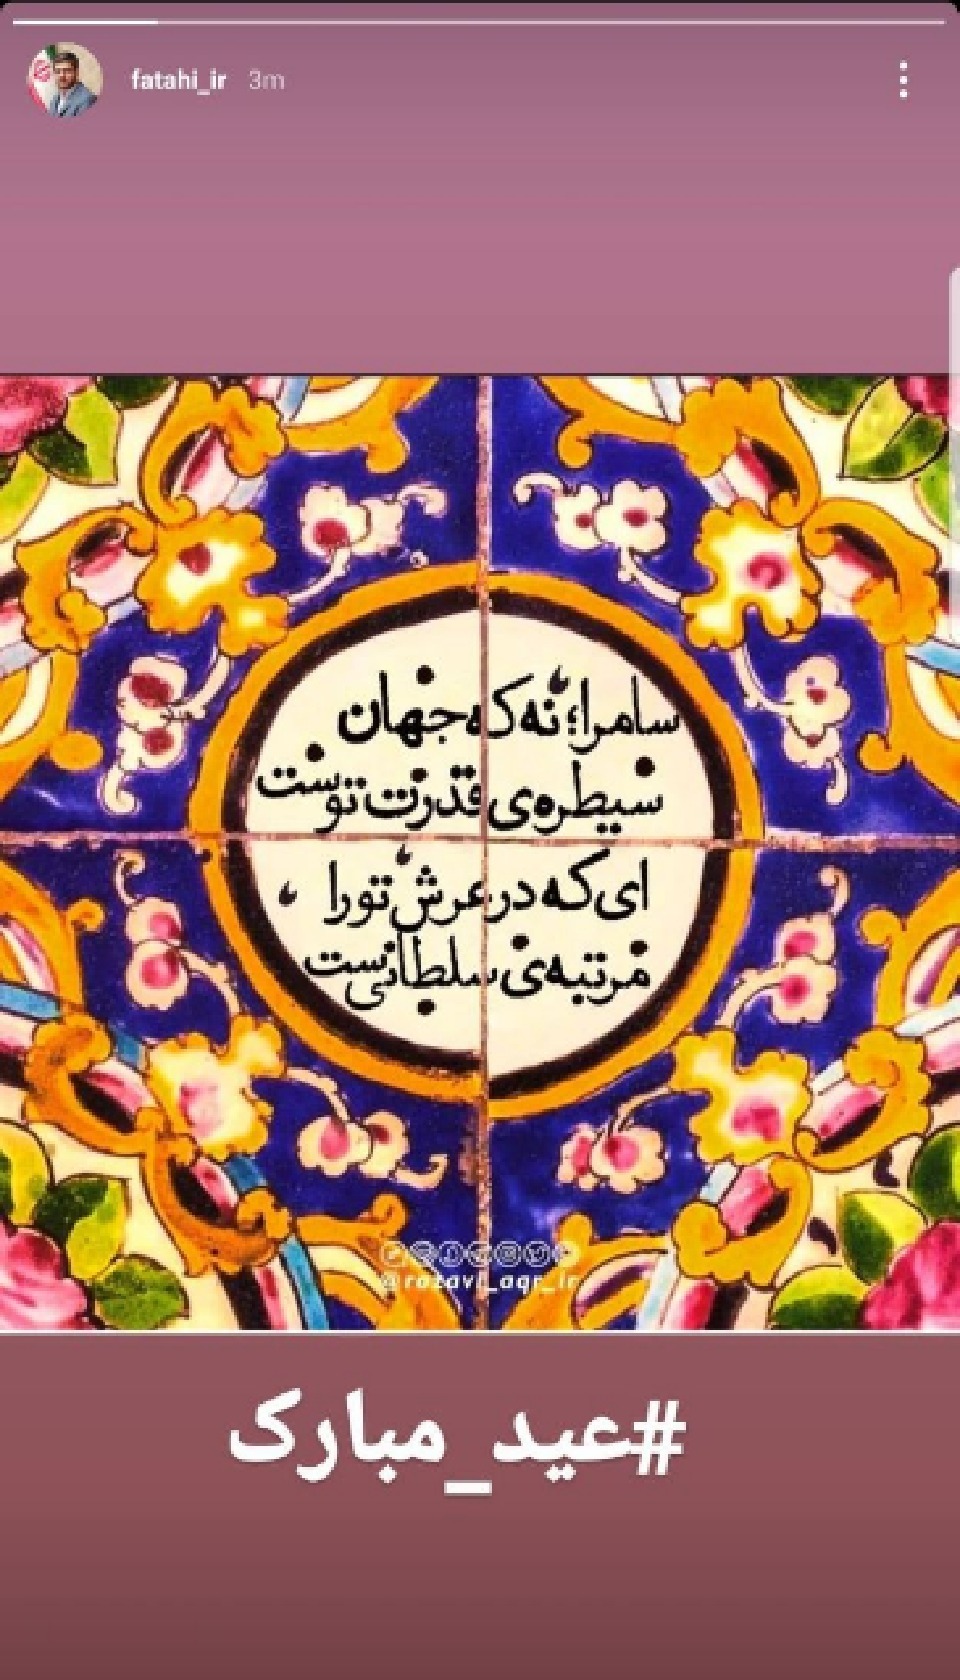 fatahi_ir 3m
سامرا؛ نه که جهان
سیطره‌ی قدرت توست
ای که در عرش تو را
مرتبه‌ی سلطانی‌ست
@razavi_aqr_ir
#عید_مبارک